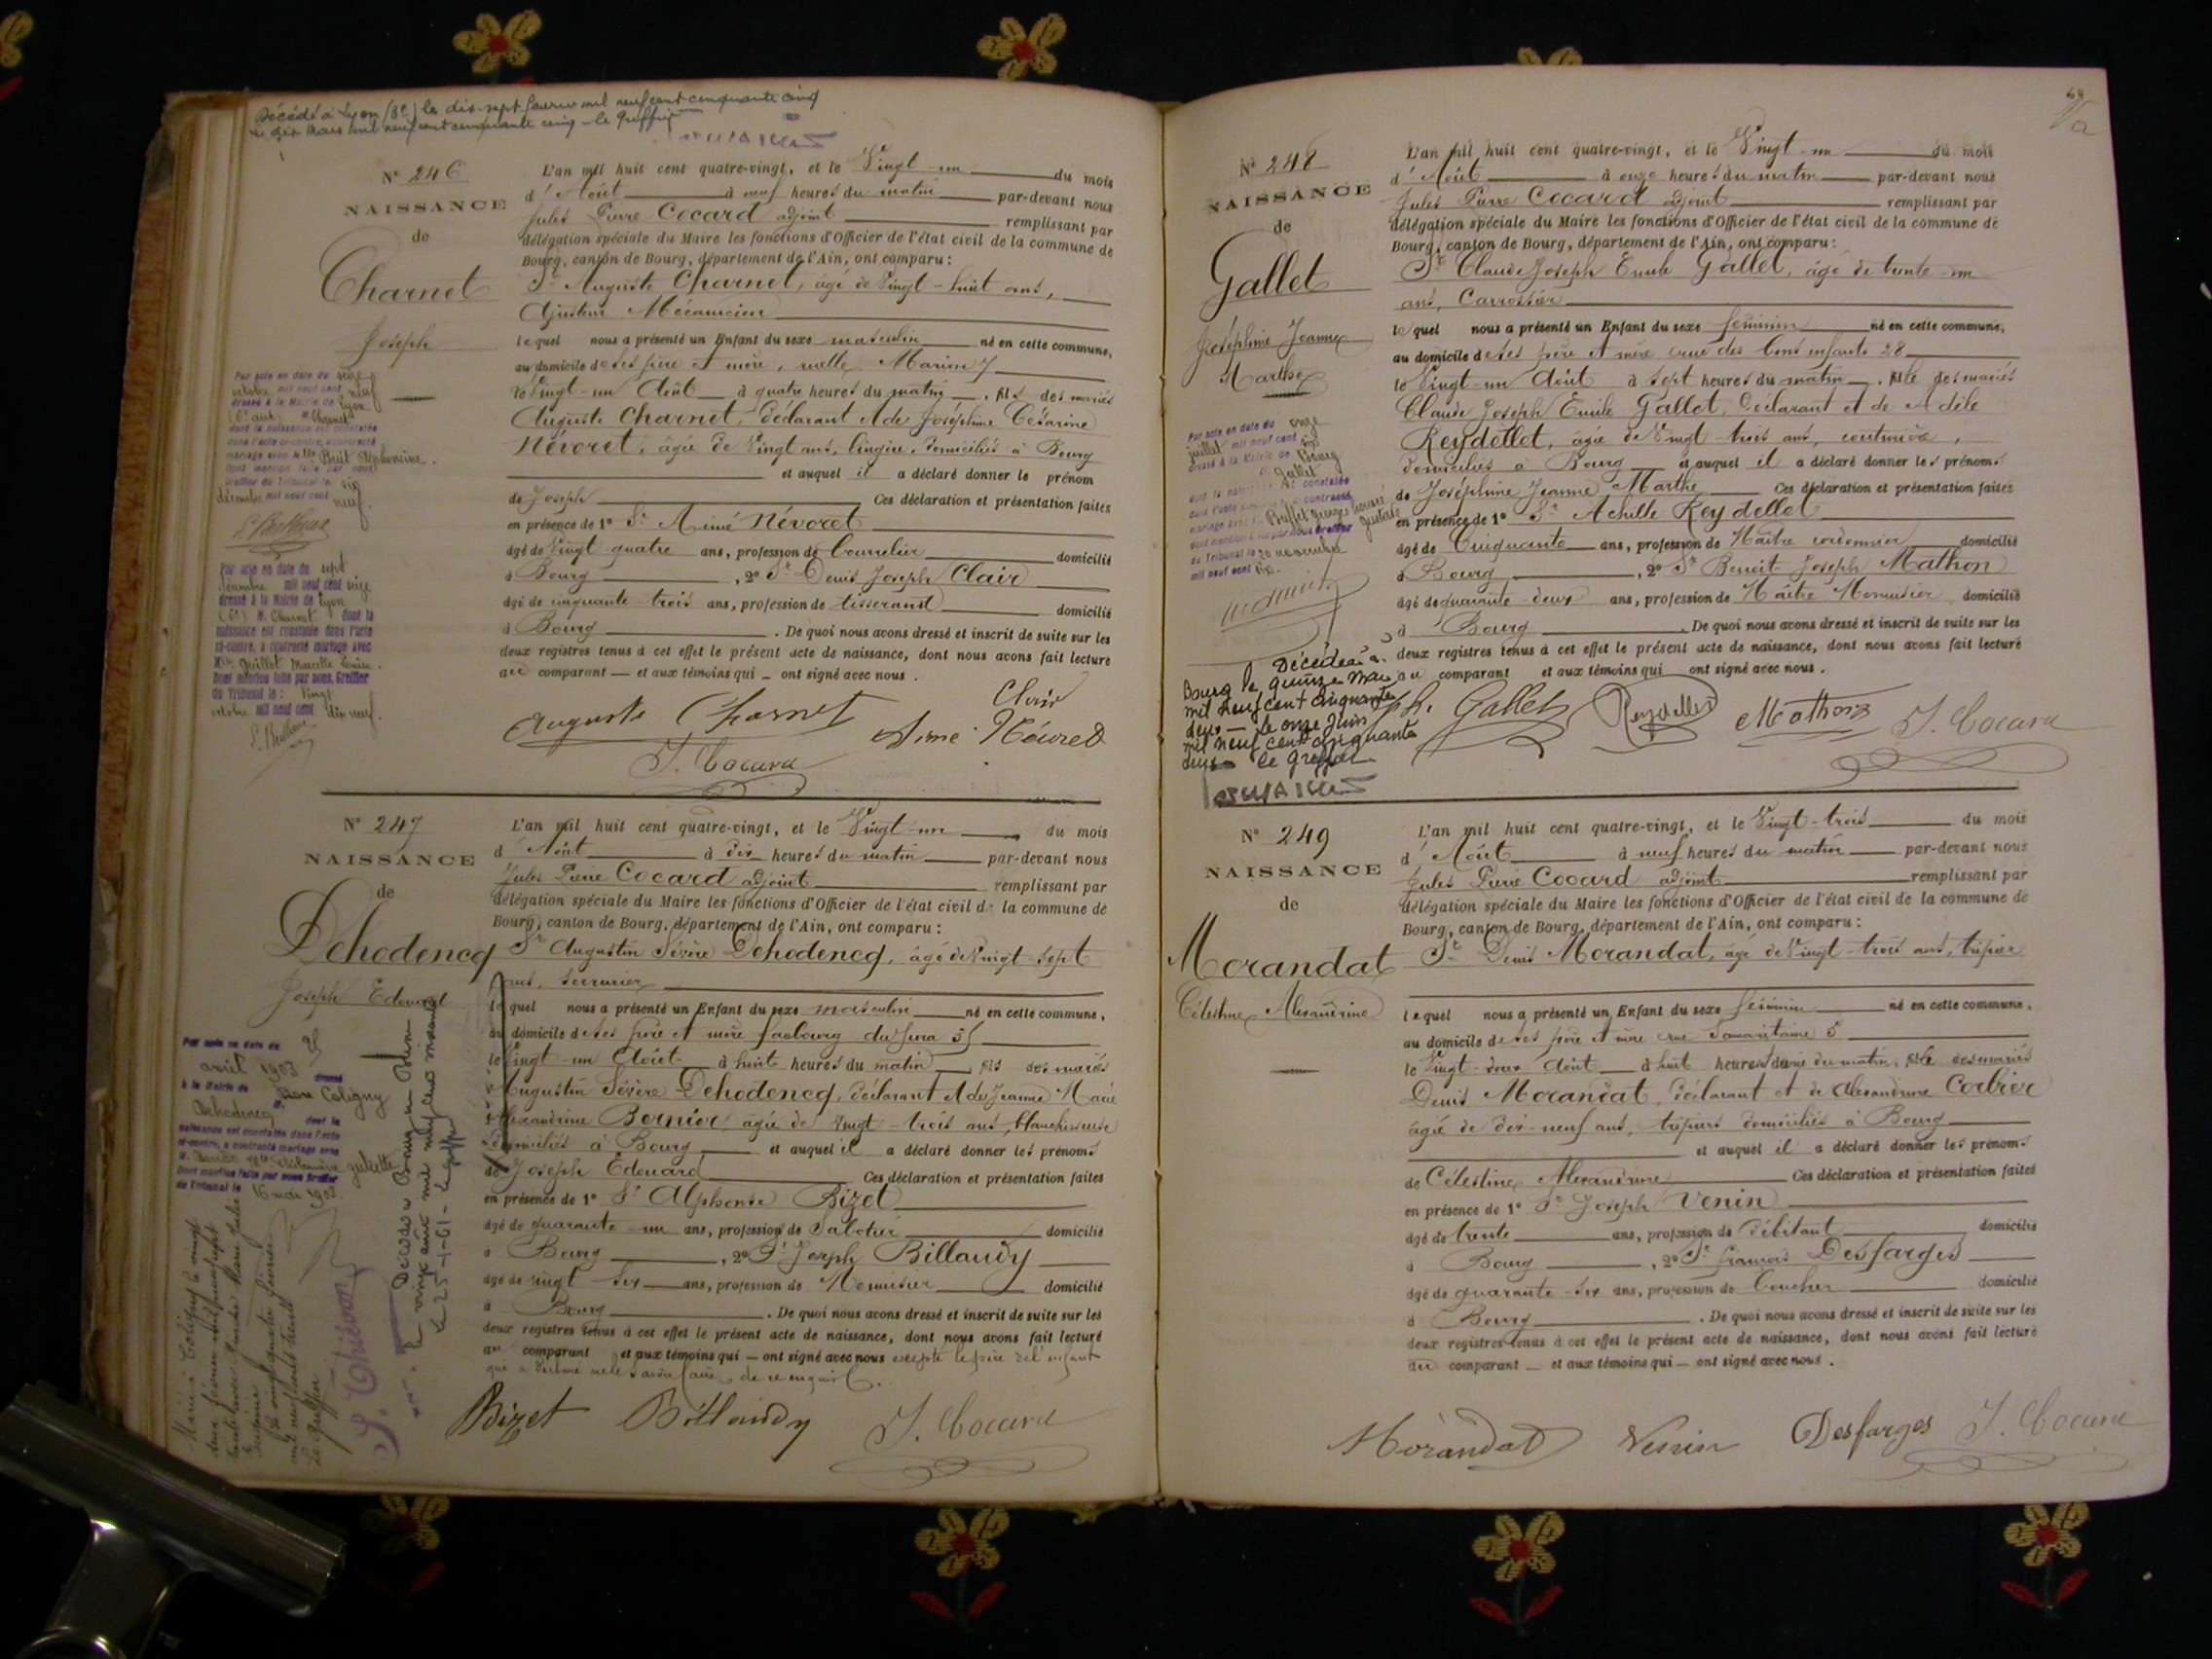 Décédé à Lyon (3e) le dix-sept février mil neuf cent cinquante cinq
Le dix Mars mil neuf cent cinquante cinq - le Greffier
N° 246
NAISSANCE
de
Charnet
Joseph
Par acte en date du seize
octobre mil neuf cent neuf
dressé à la Mairie de Lyon
M. Charnet
dont la naissance est constatée
dans l'acte ci-contre, a contracté
mariage avec Mlle Buit Alphonsine.
dont mention faite par nous
Greffier du Tribunal le six
décembre mil neuf cent neuf.
Par acte en date du sept
décembre mil neuf cent seize
dressé à la Mairie de Lyon
(6e) M. Charnet dont la
naissance est constatée dans l'acte
ci-contre, a contracté mariage avec
Mlle Guillet Marcelle Louise.
Dont mention faite par nous, Greffier
du Tribunal le : Vingt
octobre mil neuf cent dix neuf.
L'an mil huit cent quatre-vingt, et le Vingt-un du mois
d'Août à neuf heures du matin par-devant nous
Jules Pierre Cocard adjoint remplissant par
délégation spéciale du Maire les fonctions d'Officier de l'état civil de la commune de
Bourg, canton de Bourg, département de l'Ain, ont comparu :
Sr Auguste Charnet, âgé de Vingt-huit ans,
Ajusteur Mécanicien
lequel nous a présenté un Enfant du sexe masculin né en cette commune,
au domicile de ses père et mère, ruelle Marion 7
le Vingt-un Août à quatre heures du matin, fils des mariés
Auguste Charnet, déclarant & de Joséphine Césarine
Névoret, âgée de Vingt ans, lingère, domiciliés à Bourg
et auquel il a déclaré donner le prénom
de Joseph Ces déclaration et présentation faites
en présence de 1° Sr Aimé Névoret
âgé de Vingt quatre ans, profession de Bourrelier domicilié
à Bourg, 2° Sr Denis Joseph Clair
âgé de cinquante-trois ans, profession de tisserand domicilié
à Bourg. De quoi nous avons dressé et inscrit de suite sur les
deux registres tenus à cet effet le présent acte de naissance, dont nous avons fait lecture
au comparant et aux témoins qui ont signé avec nous.
Auguste Charnet Clair
Aimé Névoret
J. Cocard
N° 247
NAISSANCE
de
Dehodencq
Joseph Edouard
Par acte en date du 25
avril 1903 dressé
à la Mairie de Coligny
M. Dehodencq dont la
naissance est constatée dans l'acte
ci-contre, a contracté mariage avec
Juliette
Dont mention faite par nous Greffier
du Tribunal le 16 mai 1903
Marié à Coligny le vingt
Le Greffier
J. Thiévon
Décédé à Bourg
L'an mil huit cent quatre-vingt, et le Vingt-un du mois
d'Août à dix heures du matin par-devant nous
Jules Pierre Cocard adjoint remplissant par
délégation spéciale du Maire les fonctions d'Officier de l'état civil de la commune de
Bourg, canton de Bourg, département de l'Ain, ont comparu :
Sr Augustin Sévère Dehodencq, âgé de Vingt-sept
ans, serrurier
lequel nous a présenté un Enfant du sexe masculin né en cette commune,
au domicile de ses père et mère faubourg du Jura 55
le Vingt-un Août à huit heures du matin fils des mariés
Augustin Sévère Dehodencq, déclarant & de Jeanne Marie
Alexandrine Bernier âgée de Vingt-trois ans, blanchisseuse
domiciliés à Bourg et auquel il a déclaré donner les prénoms
de Joseph Edouard Ces déclaration et présentation faites
en présence de 1° Sr Alphonse Bizet
âgé de quarante-un ans, profession de Sabotier domicilié
à Bourg, 2° Sr Joseph Billaudy
âgé de vingt-six ans, profession de Menuisier domicilié
à Bourg. De quoi nous avons dressé et inscrit de suite sur les
deux registres tenus à cet effet le présent acte de naissance, dont nous avons fait lecture
au comparant et aux témoins qui ont signé avec nous excepté le père de l'enfant
qui a déclaré ne le savoir faire, de ce enquis.
Bizet Billaudy J. Cocard
69
N° 248
NAISSANCE
de
Gallet
Joséphine Jeanne
Marthe
Par acte en date du onze
juillet mil neuf cent six
dressé à la Mairie de Bourg
M. Gallet
dont la naissance est constatée
dans l'acte ci-contre a contracté
mariage avec M. Buffet Georges
Gustave
dont mention faite par nous Greffier
du Tribunal le 20 novembre
mil neuf cent six.
Décédée à
Bourg le quinze Mai
mil neuf cent cinquante
deux - le onze Juin
mil neuf cent cinquante
deux le Greffier
L'an mil huit cent quatre-vingt, et le Vingt-un du mois
d'Août à onze heures du matin par-devant nous
Jules Pierre Cocard adjoint remplissant par
délégation spéciale du Maire les fonctions d'Officier de l'état civil de la commune de
Bourg, canton de Bourg, département de l'Ain, ont comparu :
Sr Claude Joseph Emile Gallet, âgé de trente-un
ans, Carrossier
lequel nous a présenté un Enfant du sexe féminin né en cette commune,
au domicile de ses père et mère rue des bons enfants 28
le Vingt-un Août à sept heures du matin, fille des mariés
Claude Joseph Emile Gallet, Déclarant et de Adèle
Reydellet, âgée de Vingt-trois ans, couturière,
domiciliés à Bourg et auquel il a déclaré donner les prénoms
de Joséphine Jeanne Marthe Ces déclaration et présentation faites
en présence de 1° Sr Achille Reydellet
âgé de Cinquante ans, profession de Maître cordonnier domicilié
à Bourg, 2° Sr Benoit Joseph Mathon
âgé de quarante-deux ans, profession de Maître Menuisier domicilié
à Bourg. De quoi nous avons dressé et inscrit de suite sur les
deux registres tenus à cet effet le présent acte de naissance, dont nous avons fait lecture
au comparant et aux témoins qui ont signé avec nous.
Gallet Reydellet Mathon J. Cocard
N° 249
NAISSANCE
de
Morandat
Célestine Alexandrine
L'an mil huit cent quatre-vingt, et le Vingt-trois du mois
d'Août à neuf heures du matin par-devant nous
Jules Pierre Cocard adjoint remplissant par
délégation spéciale du Maire les fonctions d'Officier de l'état civil de la commune de
Bourg, canton de Bourg, département de l'Ain, ont comparu :
Sr Denis Morandat, âgé de Vingt-trois ans, tripier
lequel nous a présenté un Enfant du sexe féminin né en cette commune,
au domicile de ses père et mère rue Samaritaine 5
le Vingt-deux Août à huit heures du matin, fille des mariés
Denis Morandat, déclarant et de Alexandrine Corbier
âgée de dix-neuf ans, tripiers domiciliés à Bourg
et auquel il a déclaré donner les prénoms
de Célestine Alexandrine Ces déclaration et présentation faites
en présence de 1° Sr Joseph Venin
âgé de trente ans, profession de Débitant domicilié
à Bourg, 2° Sr François Desfarges
âgé de quarante-six ans, profession de boucher domicilié
à Bourg. De quoi nous avons dressé et inscrit de suite sur les
deux registres tenus à cet effet le présent acte de naissance, dont nous avons fait lecture
au comparant et aux témoins qui ont signé avec nous.
Morandat Venin Desfarges J. Cocard